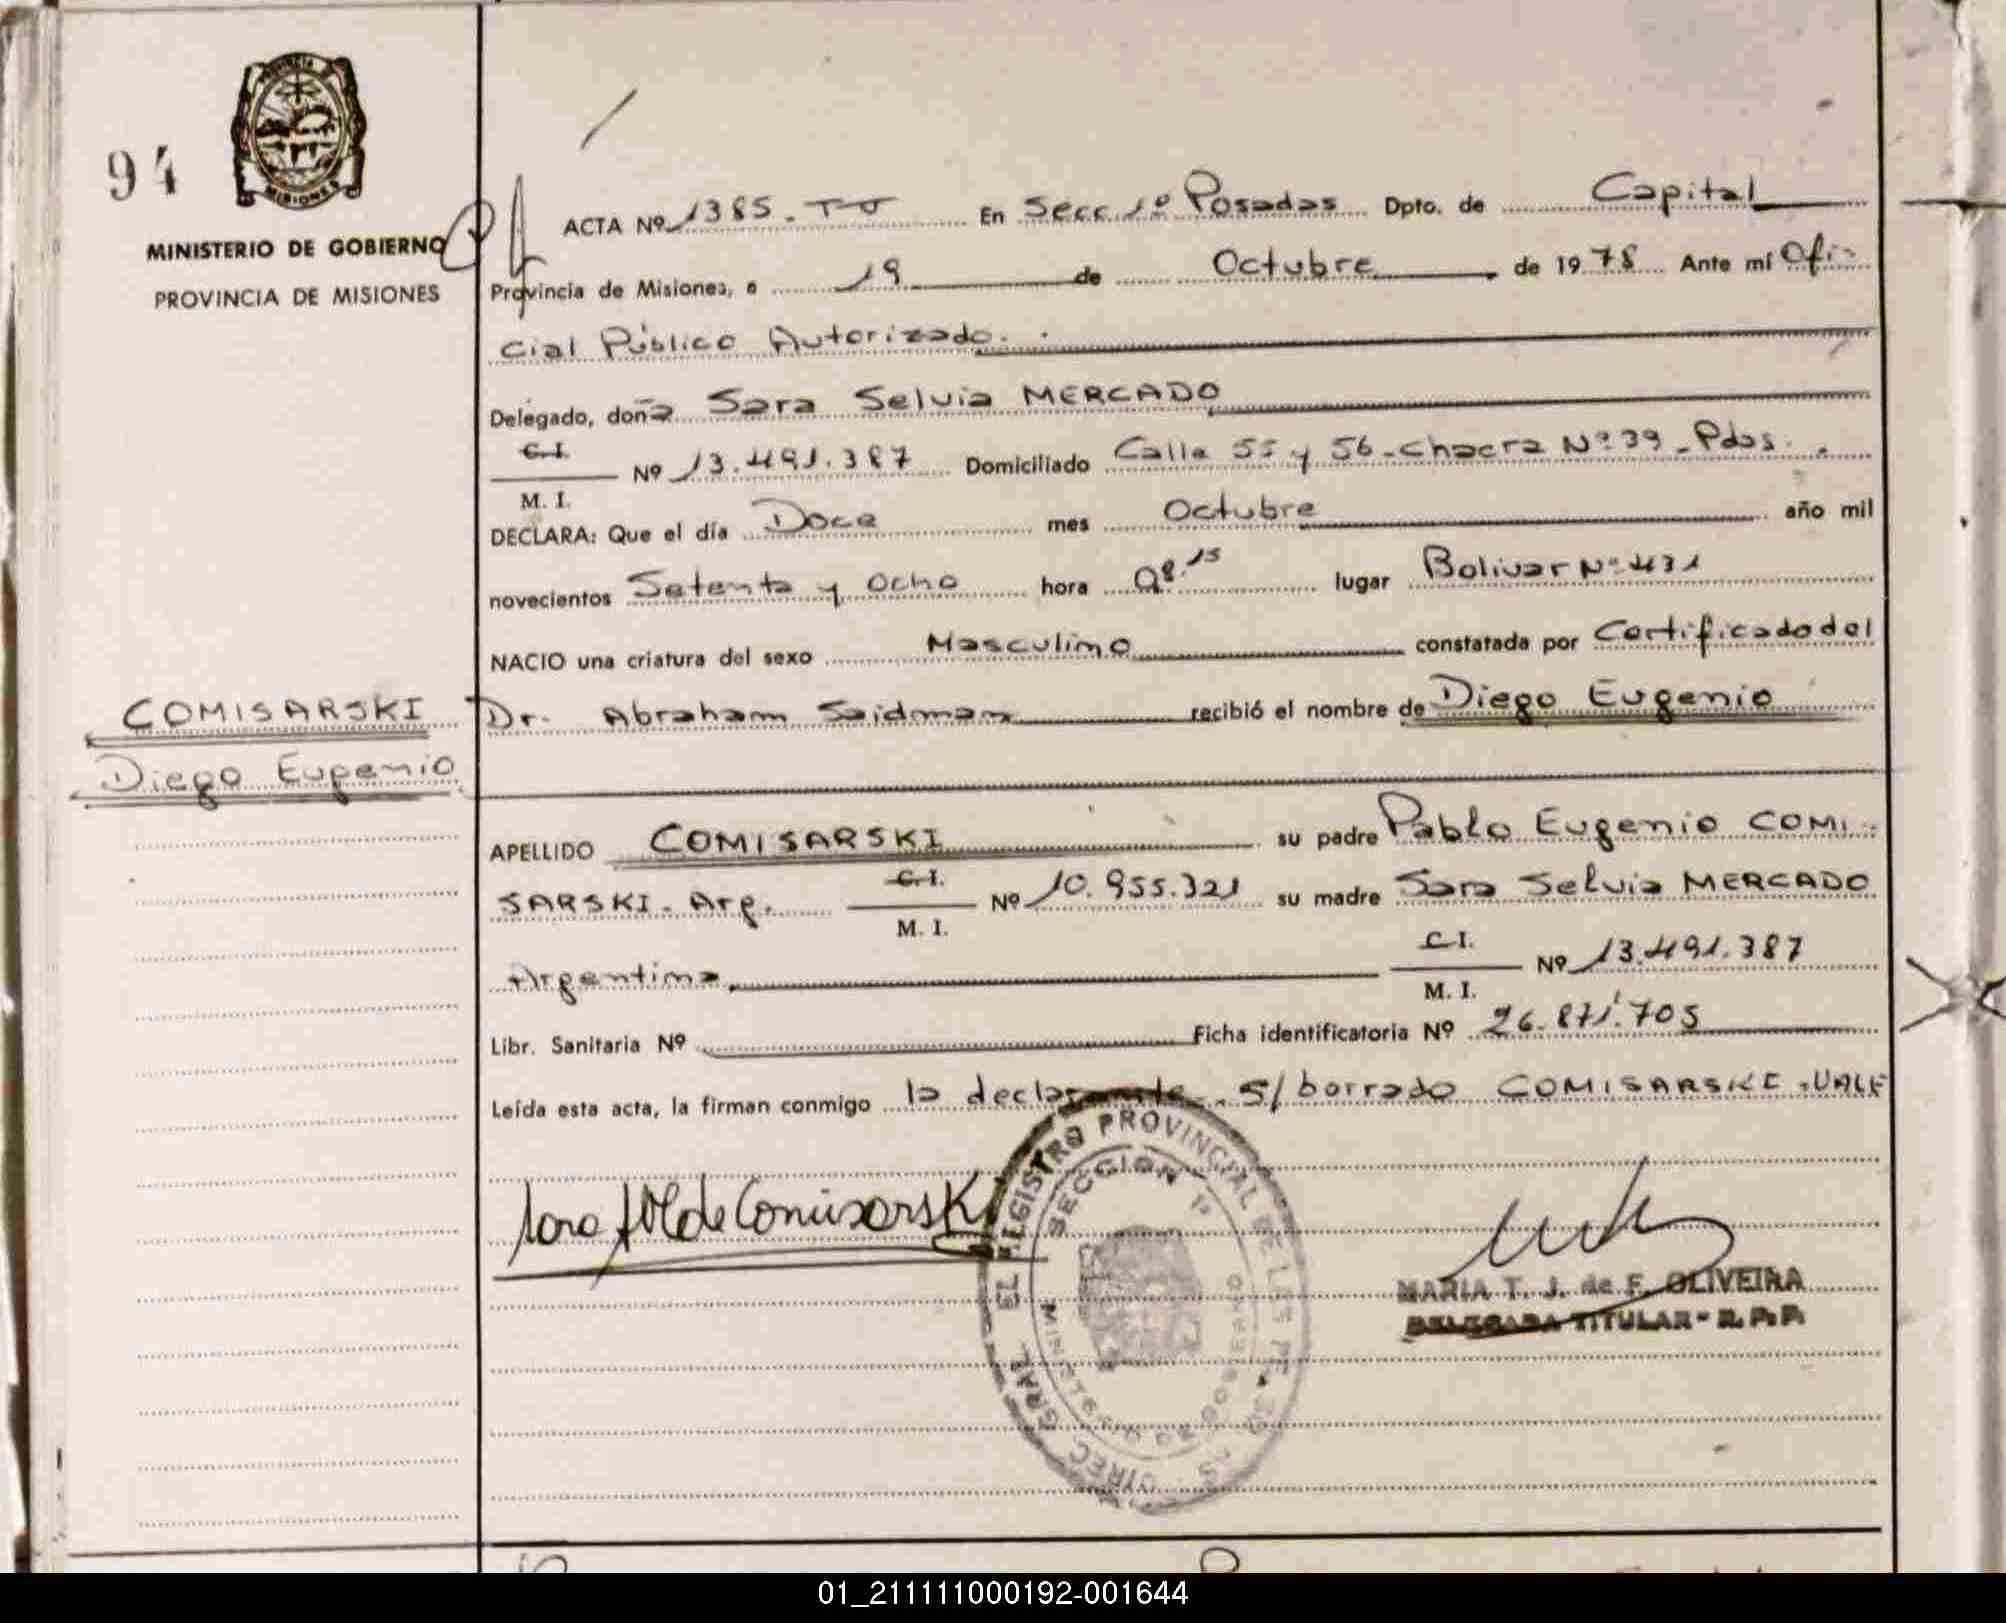 94
MINISTERIO DE GOBIERNO
PROVINCIA DE MISIONES
ACTA Nº 1385. En Secc 1º Posadas Dpto. de Capital
Provincia de Misiones, a 19 de Octubre de 1978 Ante mí Ofi-
cial Público Autorizado.
Delegado, doña Sara Selvia MERCADO
C.I.
M. I. Nº 13.491.387 Domiciliado Calle 55 y 56-Chacra Nº 39-Pdas.
DECLARA: Que el día Doce mes Octubre año mil
novecientos Setenta y Ocho hora 08.15 lugar Bolivar Nº 431
NACIO una criatura del sexo Masculino constatada por Certificado del
Dr. Abraham Saidman recibió el nombre de Diego Eugenio
COMISARSKI
Diego Eugenio
APELLIDO COMISARSKI su padre Pablo Eugenio COMI-
SARSKI. Arg. C.I. M. I. Nº 10.955.321 su madre Sara Selvia MERCADO
Argentina C.I. M. I. Nº 13.491.387
Libr. Sanitaria Nº Ficha identificatoria Nº 26.871.705
Leída esta acta, la firman conmigo la declarante. S/borrado COMISARSKI-VALE
de Comisarski
MARIA T. J. de F. OLIVEIRA
DELEGADA TITULAR - R. P. P.
REGISTRO PROVINCIAL DE LAS PERSONAS
DIREC. GRAL. DEL
SECCION 1º
MINISTERIO DE GOBIERNO
01_211111000192-001644